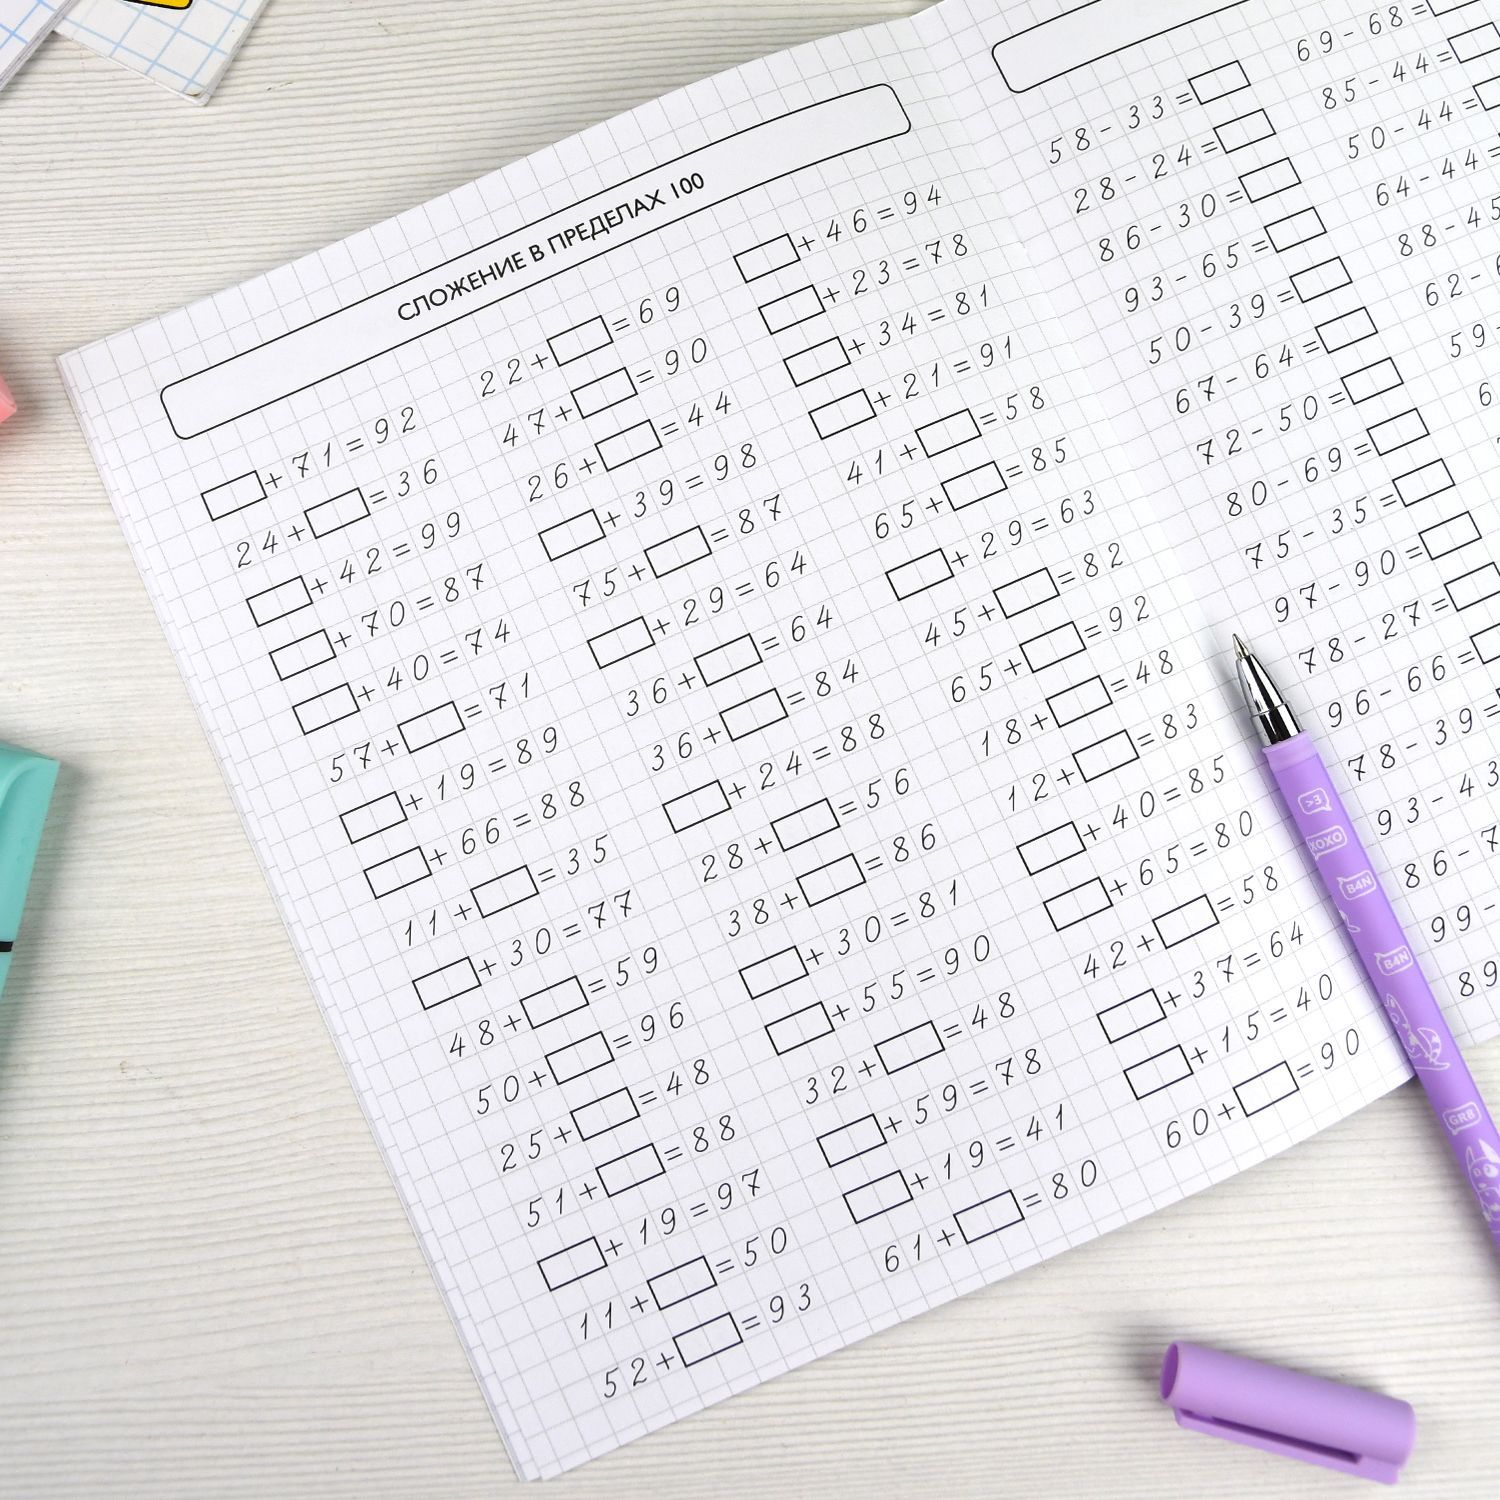 СЛОЖЕНИЕ В ПРЕДЕЛАХ 100
□+71=92
24+□=36
□+42=99
□+70=87
□+40=74
57+□=71
□+19=89
□+66=88
11+□=35
□+30=77
48+□=59
50+□=96
25+□=48
51+□=88
□+19=97
11+□=50
52+□=93
22+□=69
47+□=90
26+□=44
□+39=98
75+□=87
□+29=64
36+□=64
36+□=84
□+24=88
28+□=56
38+□=86
□+30=81
□+55=90
32+□=48
□+59=78
□+19=41
61+□=80
□+46=94
□+23=78
□+34=81
□+21=91
41+□=58
65+□=85
□+29=63
45+□=82
65+□=92
18+□=48
12+□=83
□+40=85
□+65=80
42+□=58
□+37=64
□+15=40
60+□=90
58-33=□
28-24=□
86-30=□
93-65=□
50-39=□
67-64=□
72-50=□
80-69=□
75-35=□
97-90=□
78-27=□
96-66=□
78-39=
93-43
86-7
99-
89
69-68=□
85-44=□
50-44=□
64-44=
88-45
62-
59-
6
>3
XOXO
B4N
B4N
GR8